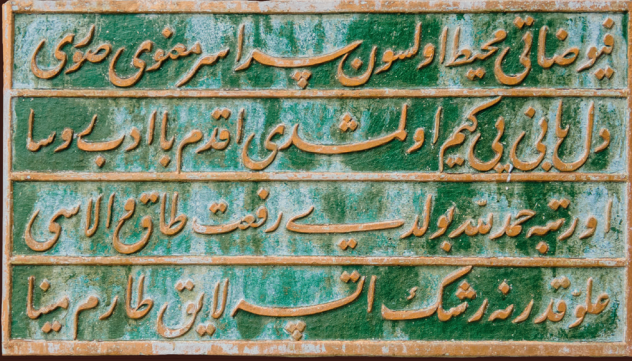 فیوضاتی محیط اولسون سراسر معنوی صوری
دل بانی یی کیم اولمشدی اقدم باادب روسا
او رتبه حمد لله بولدی رفعت طاق والاسی
علو قدرنه رشك اتسه لایق طارم مینا